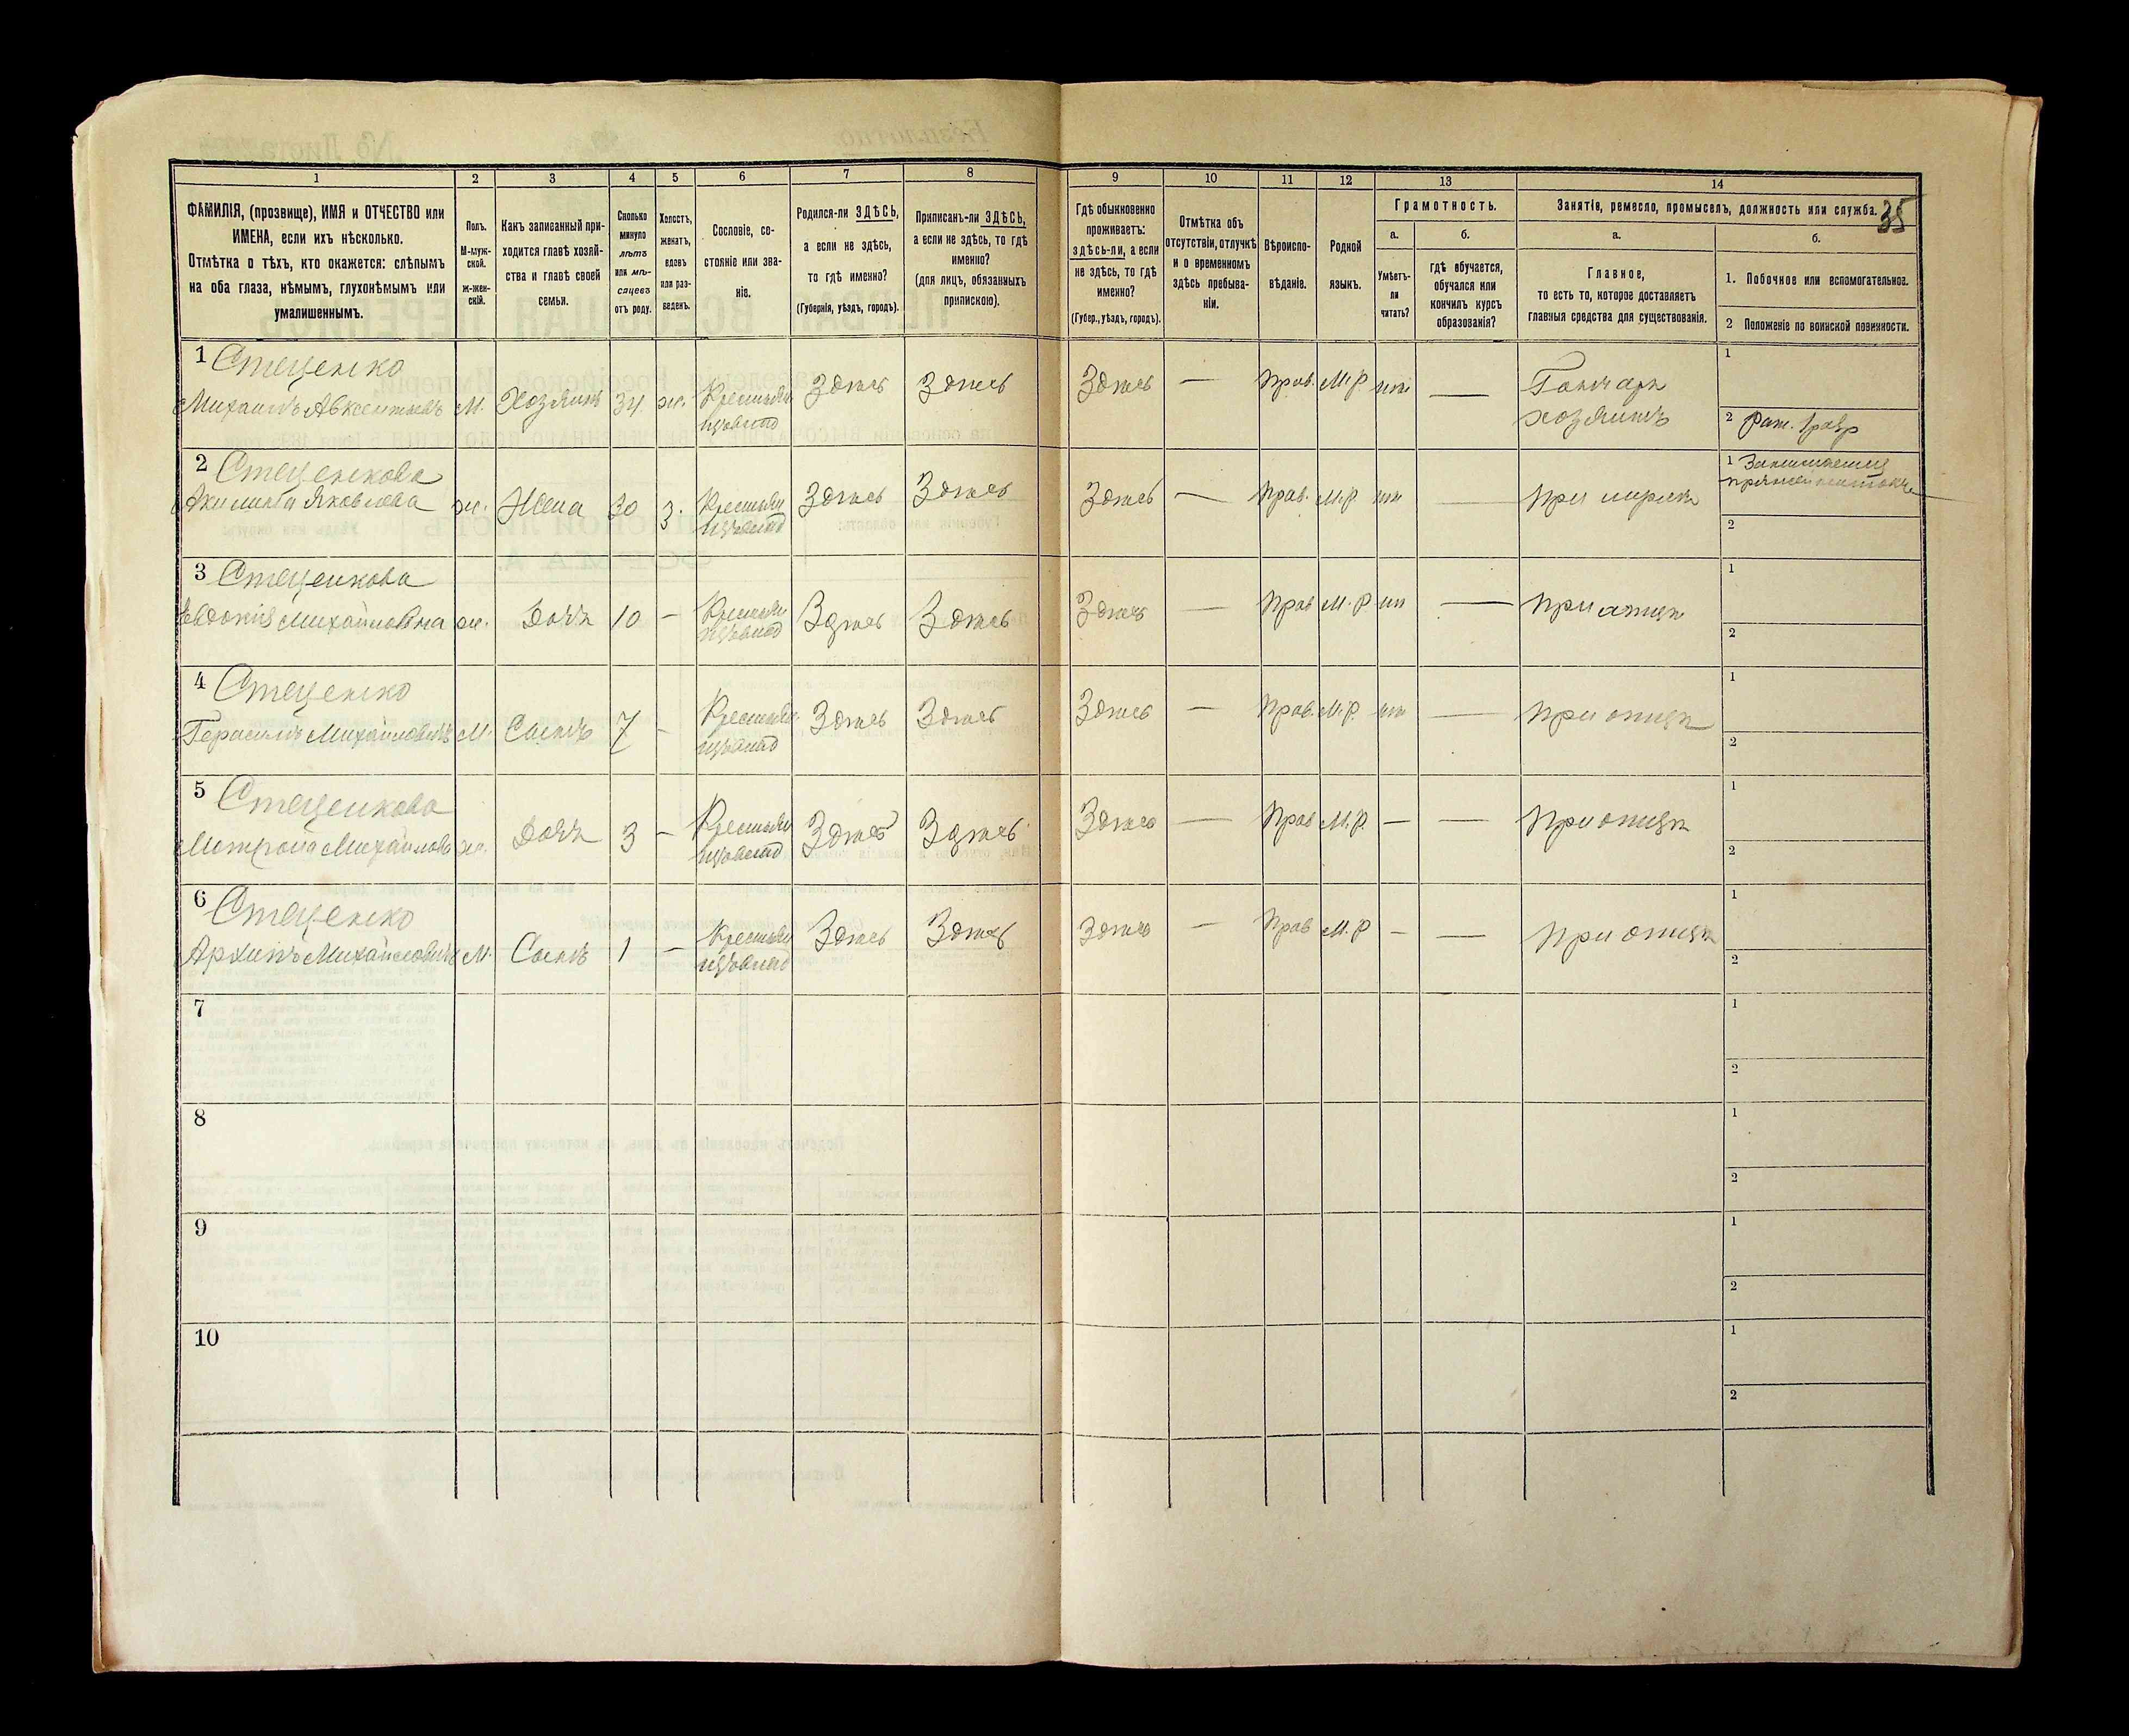 35
1 2 3 4 5 6 7 8 9 10 11 12 13 14
ФАМИЛІЯ, (прозвище), ИМЯ и ОТЧЕСТВО или
ИМЕНА, если ихъ нѣсколько.
Отмѣтка о тѣхъ, кто окажется: слѣпымъ
на оба глаза, нѣмымъ, глухонѣмымъ или
умалишеннымъ.
Полъ.
М-муж-
ской.
ж-жен-
скій.
Какъ записанный при-
ходится главѣ хозяй-
ства и главѣ своей
семьи.
Сколько
минуло
лѣтъ
или мѣ-
сяцевъ
отъ роду.
Холостъ,
женатъ,
вдовъ
или раз-
веденъ.
Сословіе, со-
стояніе или зва-
ніе.
Родился-ли ЗДѢСЬ,
а если не здѣсь,
то гдѣ именно?
(Губернія, уѣздъ, городъ).
Приписанъ-ли ЗДѢСЬ,
а если не здѣсь, то гдѣ
именно?
(для лицъ, обязанныхъ
припискою).
Гдѣ обыкновенно
проживаетъ:
здѣсь-ли, а если
не здѣсь, то гдѣ
именно?
(Губер., уѣздъ, городъ).
Отмѣтка объ
отсутствіи, отлучкѣ
и о временномъ
здѣсь пребыва-
ніи.
Вѣроиспо-
вѣданіе.
Родной
языкъ.
Грамотность.
а.
Умѣетъ-
ли
читать?
б.
гдѣ обучается,
обучался или
кончилъ курсъ
образованія?
Занятіе, ремесло, промыселъ, должность или служба.
а.
Главное,
то есть то, которое доставляетъ
главныя средства для существованія.
б.
1. Побочное или вспомогательное.
2 Положеніе по воинской повинности.
1 Стеценко
Михаилъ Авксентьевъ М. Хозяинъ 34 ж. Крестьян Здѣсь Здѣсь Здѣсь — Прав. М.Р. — Гончарь
изъ влад
хозяинъ
1
2 Рат. 1 разр
2 Стеценкова
Акилина Яковлева ж. Жена 30 з. Крестьян Здѣсь Здѣсь Здѣсь — Прав. М.Р. — при мужѣ
изъ влад
1 Занимается
2
3 Стеценкова
Евдокія Михайловна ж. Дочь 10 — Крестьян Здѣсь Здѣсь Здѣсь — Прав М.Р — при отцѣ
изъ влад
1
2
4 Стеценко
Герасимъ Михайловичъ М. Сынъ 7 — Крестьян Здѣсь Здѣсь Здѣсь — Прав. М.Р. — при отцѣ
изъ влад
1
2
5 Стеценкова
Мотрона Михайлова ж. Дочь 3 — Крестьян Здѣсь Здѣсь Здѣсь — Прав М.Р. — — при отцѣ
изъ влад
1
2
6 Стеценко
Архипъ Михайловичъ М. Сынъ 1 — Крестьян Здѣсь Здѣсь Здѣсь — Прав М.Р — — при отцѣ
изъ влад
1
2
7
1
2
8
1
2
9
1
2
10
1
2